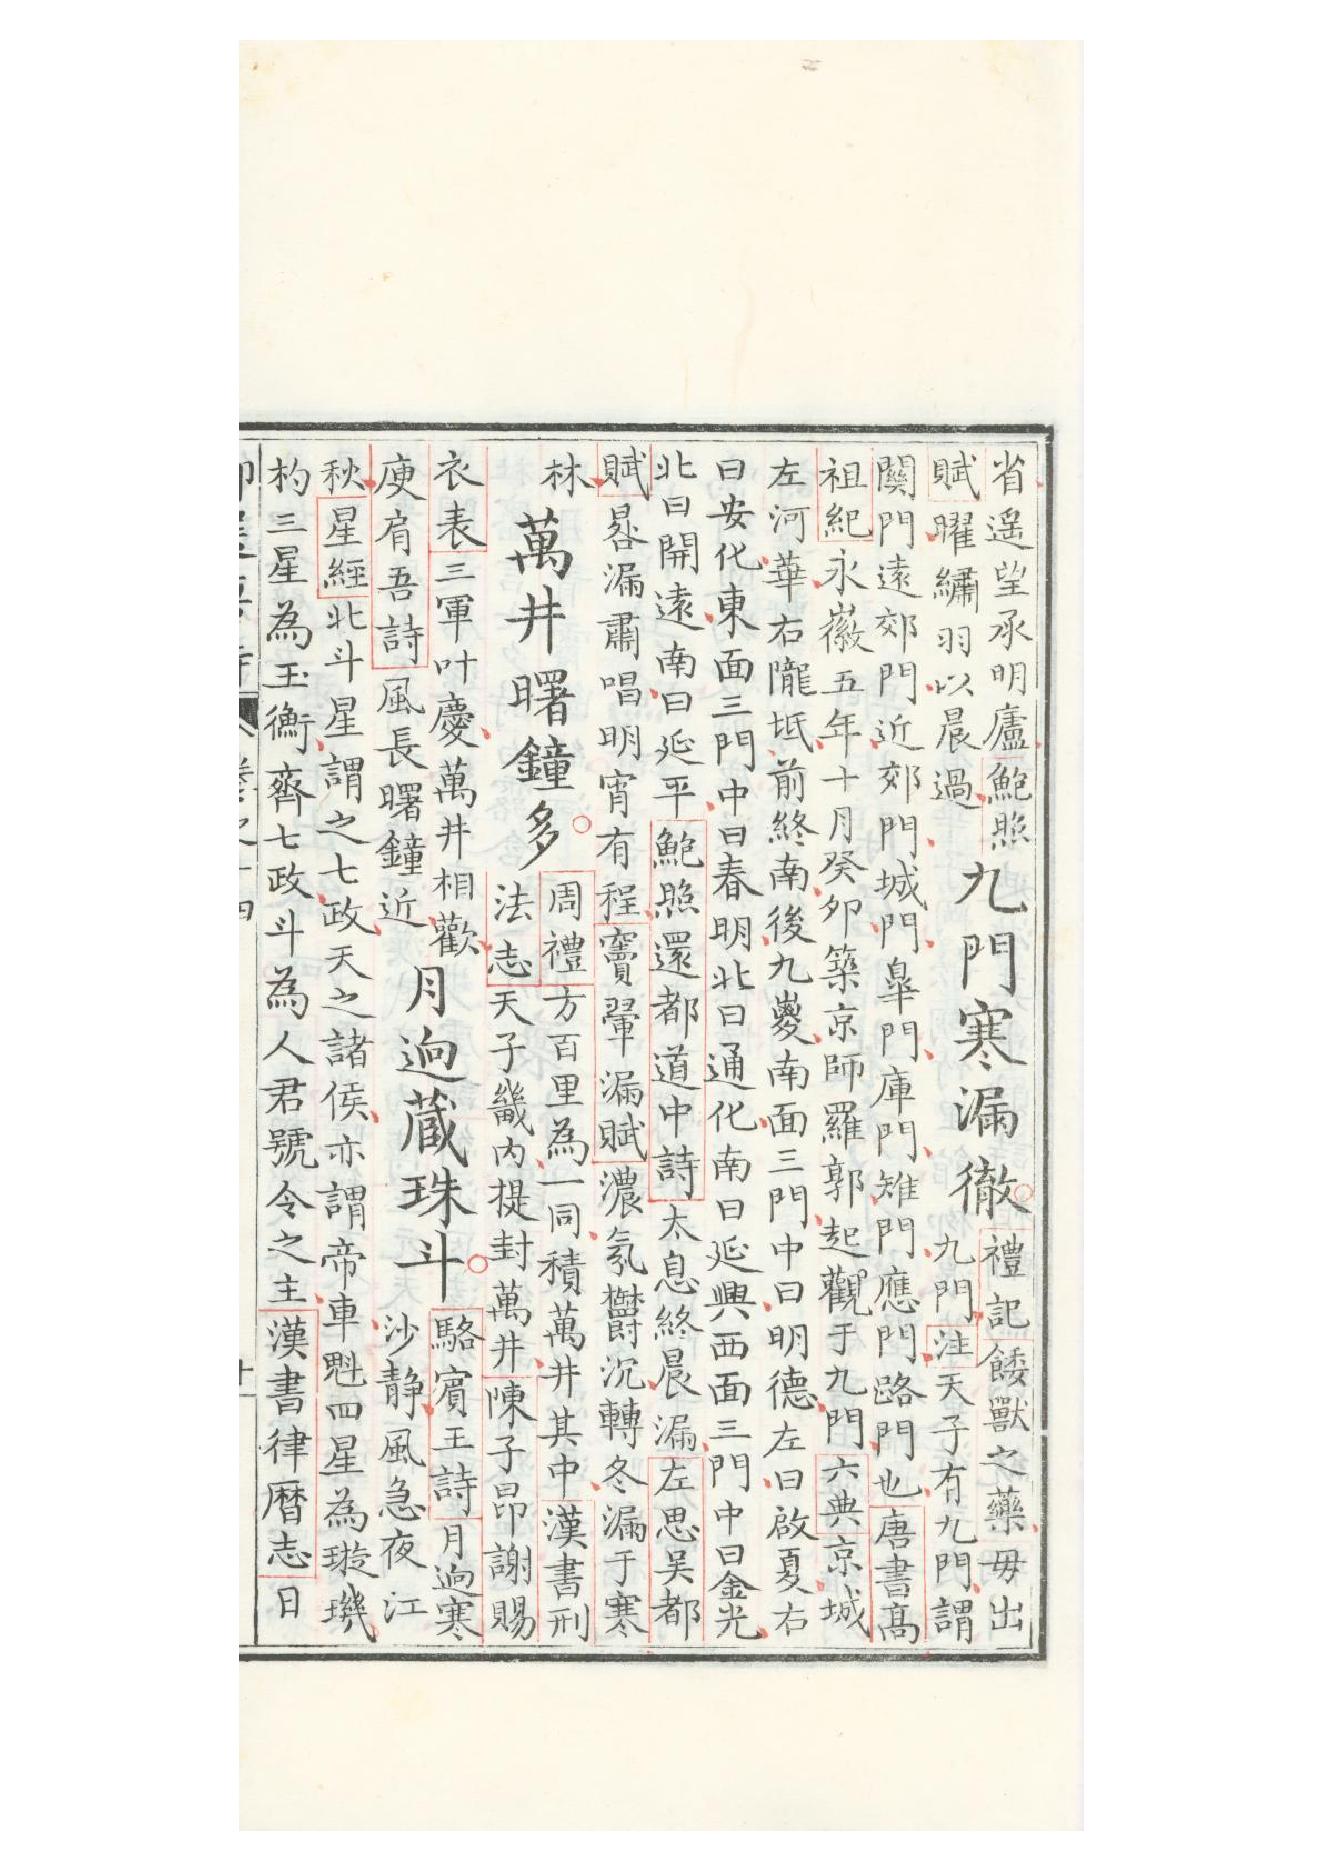 省遥望承明廬鮑照
賦曜繡羽以晨過
九門寒漏徹
禮記餧獸之藥毋出
九門注天子有九門謂
關門遠郊門近郊門城門臯門庫門雉門應門路門也唐書髙
祖紀永徽五年十月癸卯築京師羅郭起觀于九門六典京城
左河華右隴坻前終南後九嵕南面三門中曰明德左曰啟夏右
曰安化東面三門中曰春明北曰通化南曰延興西面三門中曰金光
北曰開遠南曰延平鮑照還都道中詩太息終晨漏左思吴都
賦晷漏肅唱明宵有程竇翬漏賦濃氛欝沉轉冬漏于寒
林
萬井曙鐘多
周禮方百里為一同積萬井其中漢書刑
法志天子畿内提封萬井陳子昂謝賜
衣表三軍叶慶萬井相歡
庾肩吾詩風長曙鐘近
月逈蔵珠斗
駱賓王詩月逈寒
沙静風急夜江
秋星經北斗星謂之七政天之諸侯亦謂帝車魁四星為璇璣
杓三星為玉衡齊七政斗為人君號令之主漢書律暦志日